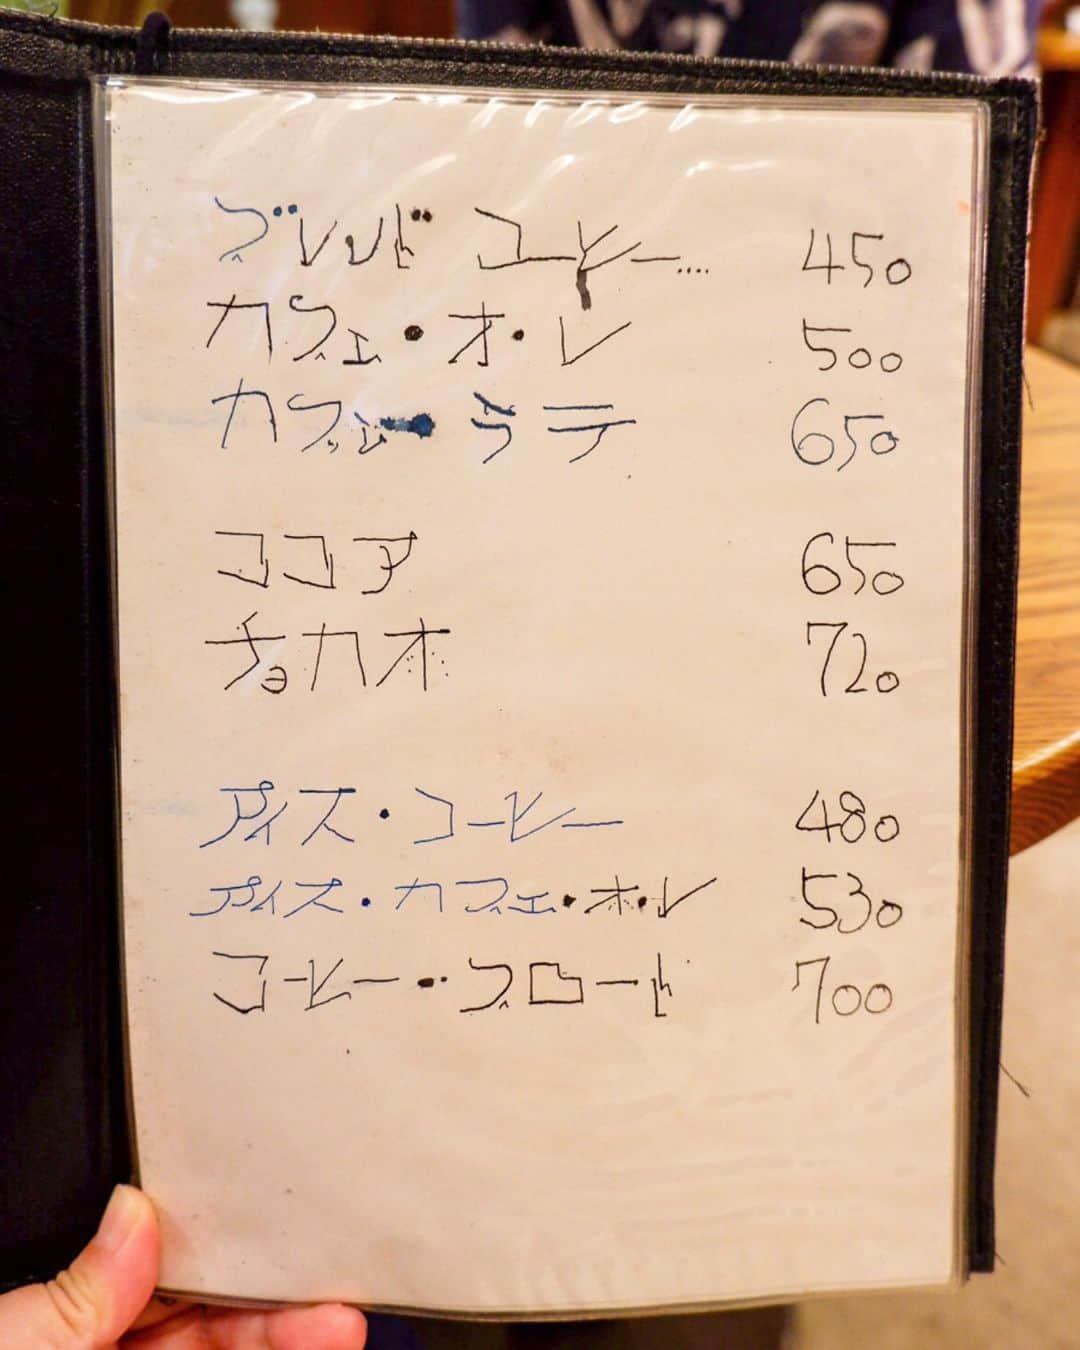 ブレンド コーヒー.... 450
カフェ・オ・レ 500
カフェ・ラテ 650
ココア 650
チョカオ 720
アイス・コーヒー 480
アイス・カフェ・オ・レ 530
コーヒー・フロート 700